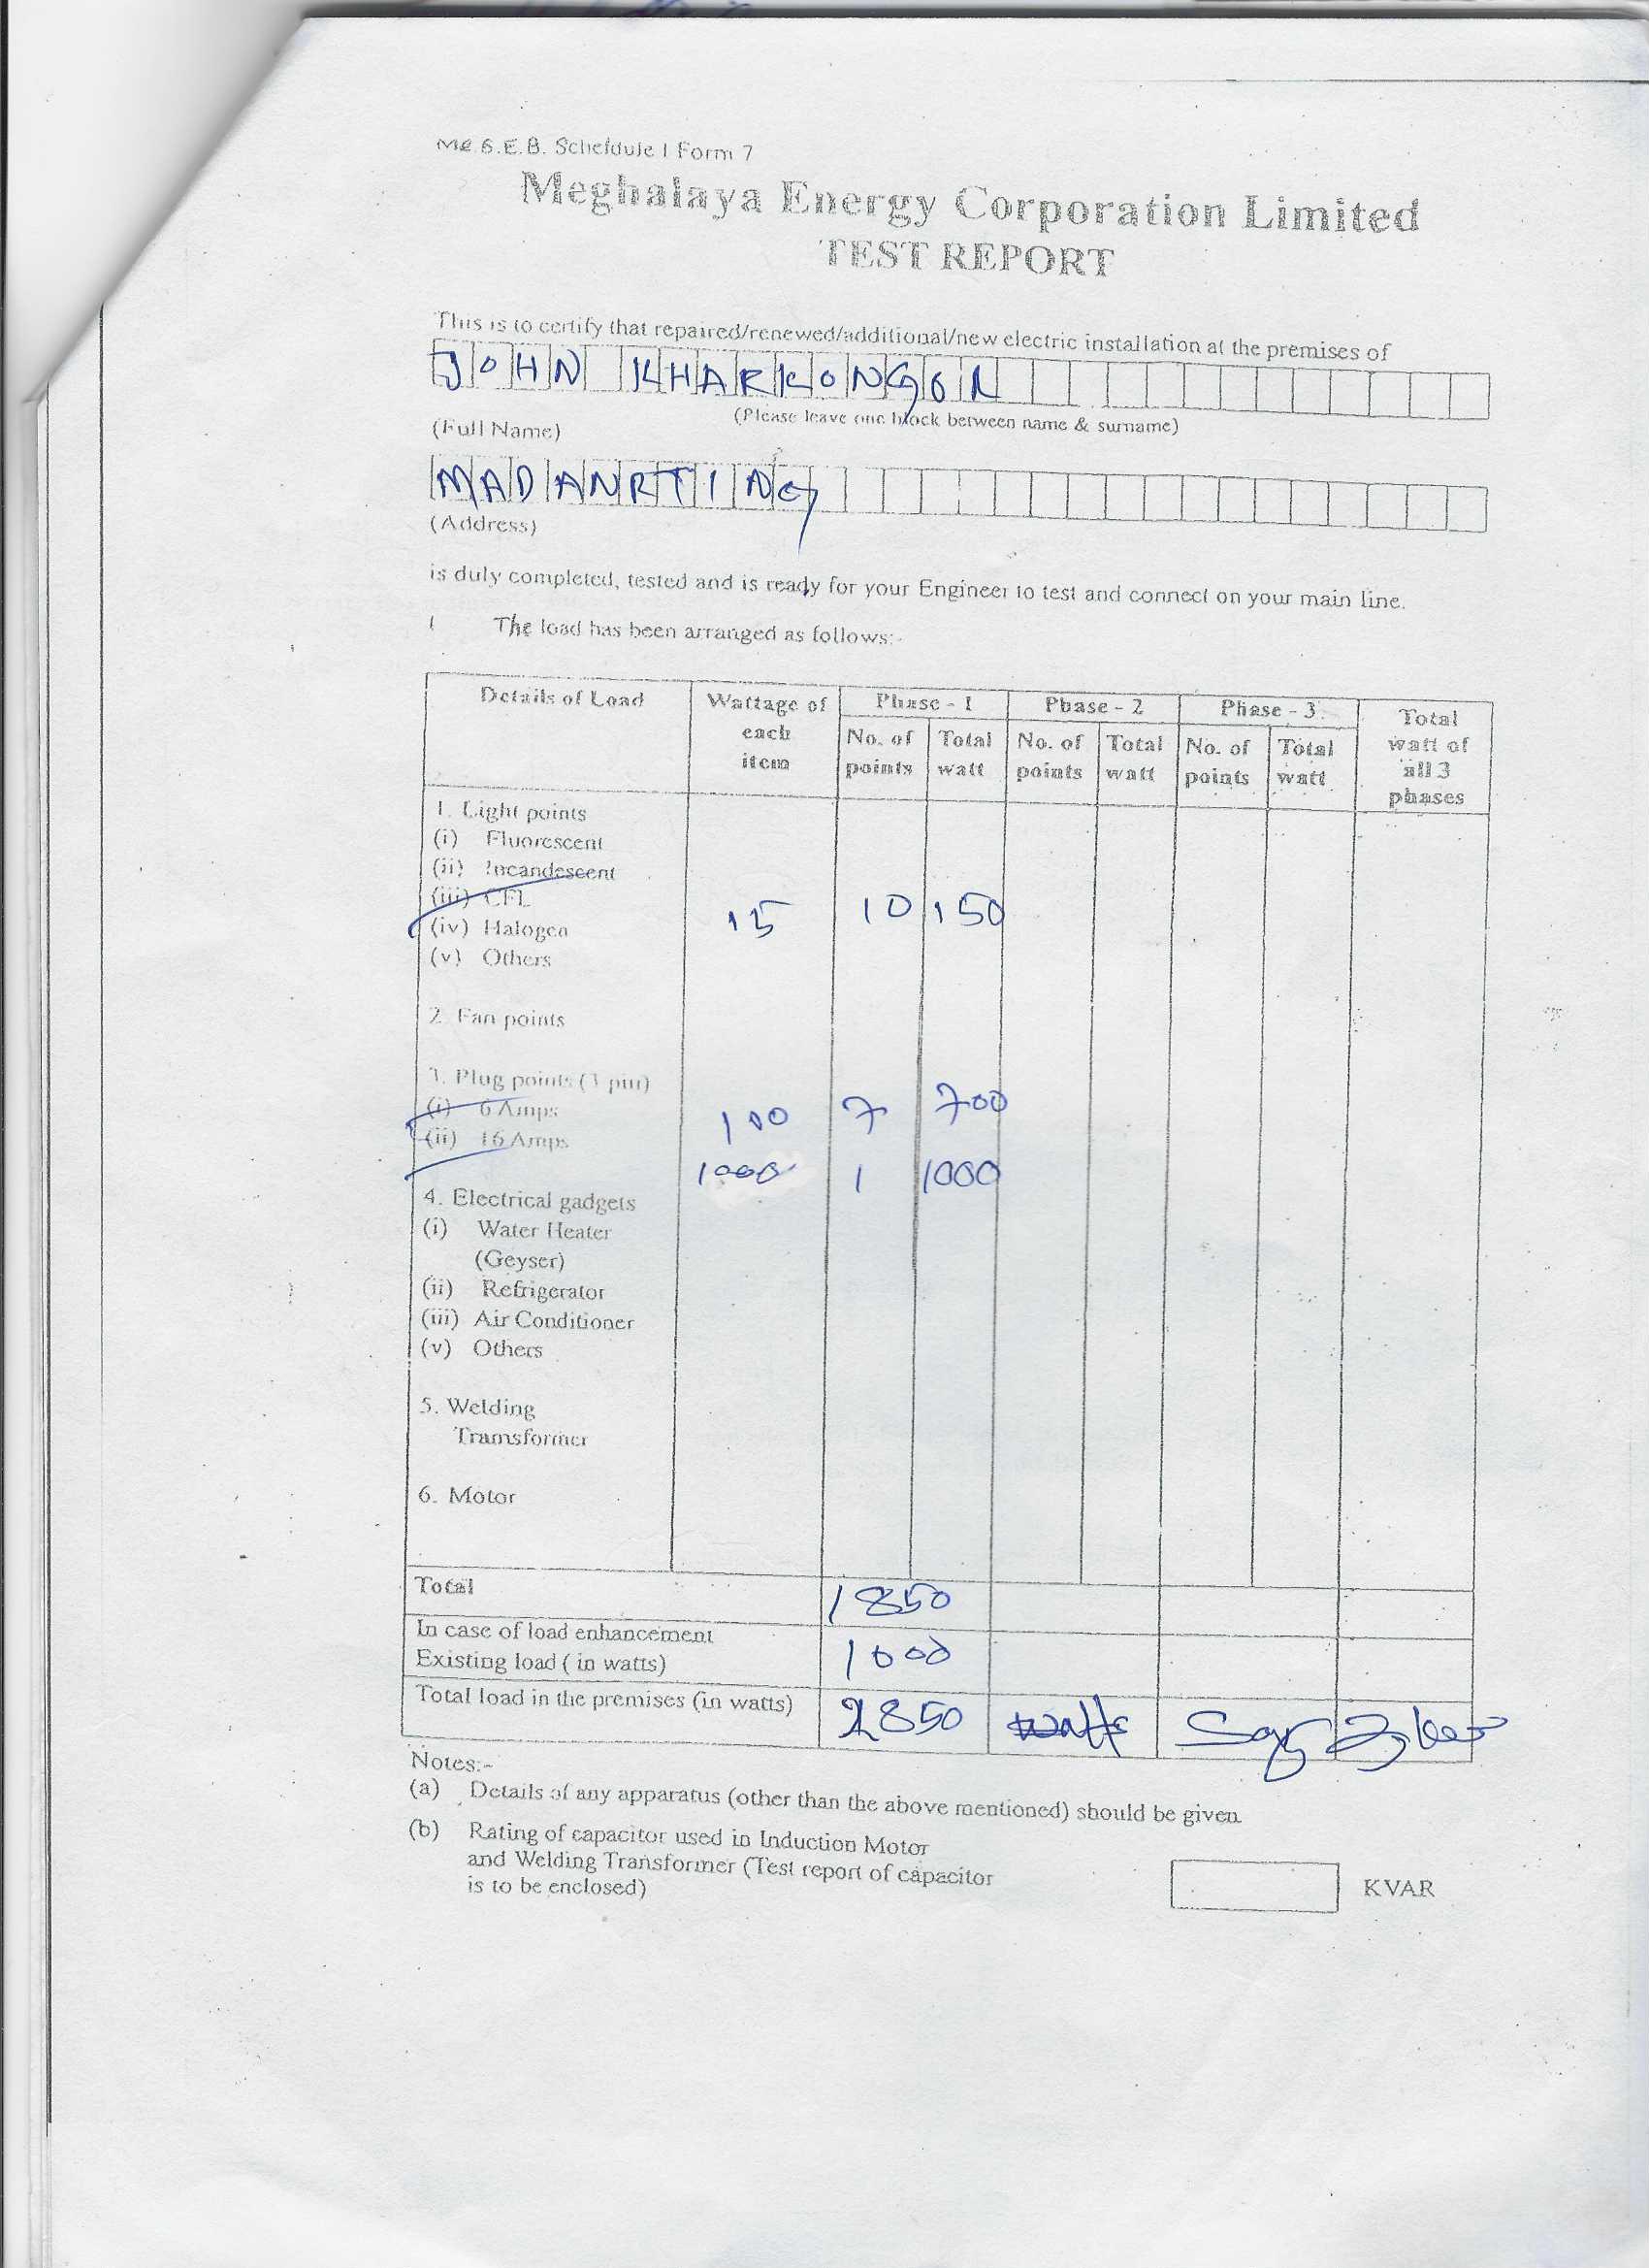 Me.S.E.B. Scheldule I Form 7
Meghalaya Energy Corporation Limited
TEST REPORT
This is to certify that repaired/renewed/additional/new electric installation at the premises of
JOHN KHARKONGOR
(Full Name) (Please leave one block between name & surname)
MADANRTING
(Address)
is duly completed, tested and is ready for your Engineer to test and connect on your main line.
1 The load has been arranged as follows:-
Details of Load Wattage of each item Phase - 1 Phase - 2 Phase - 3 Total watt of all 3 phases
No. of points Total watt No. of points Total watt No. of points Total watt
1. Light points
(i) Fluorescent
(ii) Incandescent
(iii) CFL
15 10 150
(iv) Halogen
(v) Others
2. Fan points
3. Plug points (3 pin)
(i) 6 Amps 100 7 700
(ii) 16 Amps 1000 1 1000
4. Electrical gadgets
(i) Water Heater
(Geyser)
(ii) Refrigerator
(iii) Air Conditioner
(v) Others
5. Welding
Tramsformer
6. Motor
Total 1850
In case of load enhancement
Existing load ( in watts) 1000
Total load in the premises (in watts) 2850 watts Say 3
Notes:-
(a) Details of any apparatus (other than the above mentioned) should be given.
(b) Rating of capacitor used in Induction Motor
and Welding Transformer (Test report of capacitor
is to be enclosed) KVAR